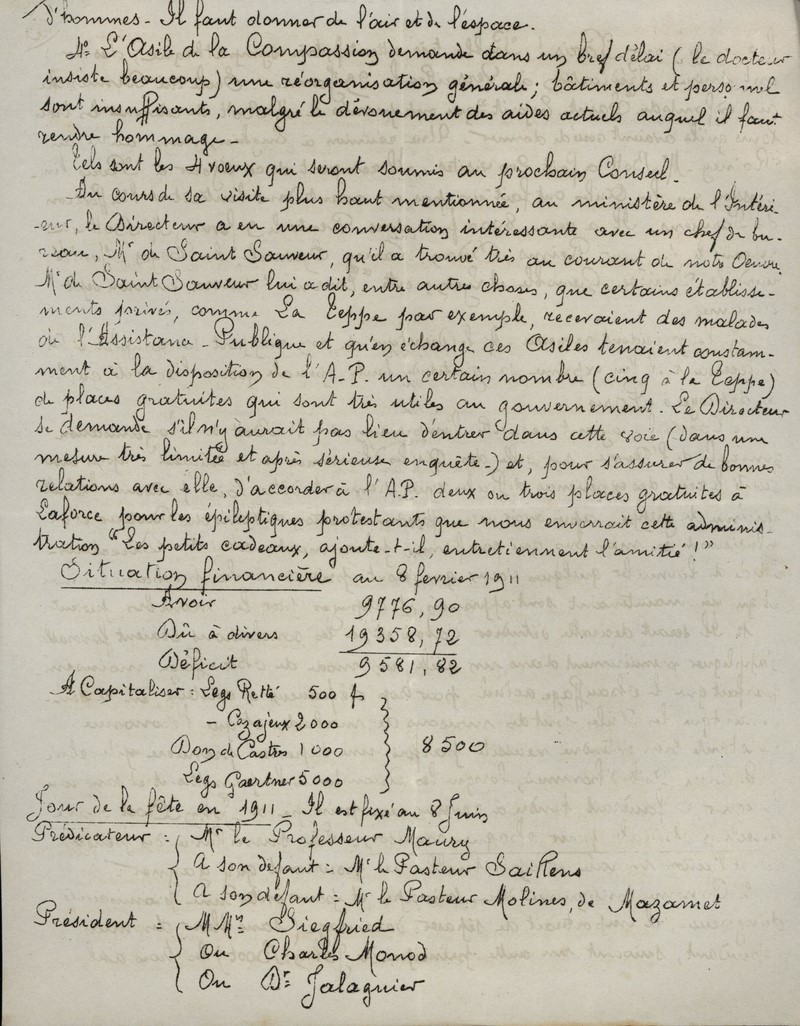 d'hommes - Il faut donner de l'air et de l'espace.
4º L'Asile de la Compassion demande dans un bref délai (le docteur
insiste beaucoup) une réorganisation générale; bâtiments et personnel
sont insuffisants, malgré le dévouement des aides actuels auquel il faut
rendre hommage -
Tels sont les 4 voeux qui seront soumis au prochain Conseil -
Au cours de sa visite plus haut mentionnée, au ministère de l'Intéri-
-eur, le Directeur a eu une conversation intéressante avec un chef de bu-
reau, Mr de Saint Sauveur, qu'il a trouvé très au courant de notre Oeuvre.
Mr de Saint Sauveur lui a dit, entre autres choses, que certains établisse-
ments privés, comme La Teppe par exemple, recevaient des malades
de l'Assistance - Publique et qu'en échange ces Asiles tenaient constam-
ment à la disposition de l'A-P. un certain nombre (cinq à la Teppe)
de places gratuites qui sont très utiles au gouvernement. Le Directeur
se demande s'il n'y aurait pas lieu d'entrer dans cette voie (dans une
mesure très limitée et après sérieuse enquête -) et, pour s'assurer de bonnes
relations avec elle, d'accorder à l'A.P. deux ou trois places gratuites à
Laforce pour les épileptiques protestants que nous enverrait cette adminis-
tration "Les petits cadeaux, ajoute-t-il, entretiennent l'amitié!"
Situation financière au 8 fevrier 1911
Avoir 9776,90
Dû à divers 19358,72
Déficit 9581,82
A Capitaliser: Legs Retté 500 f
- Cazajeux 2000
Don de Castres 1000 8500
Legs Gaertner 5000
Jour de la fête en 1911 - Il est fixé au 8 Juin
Prédicateur : Mr le Professeur Maury
A son défaut : Mr le Pasteur Saillens
A son défaut : Mr le Pasteur Molines, de Mazamet
Président : MMrs Siegfried
Ou Charles Monod
Ou Dr Jalaguier